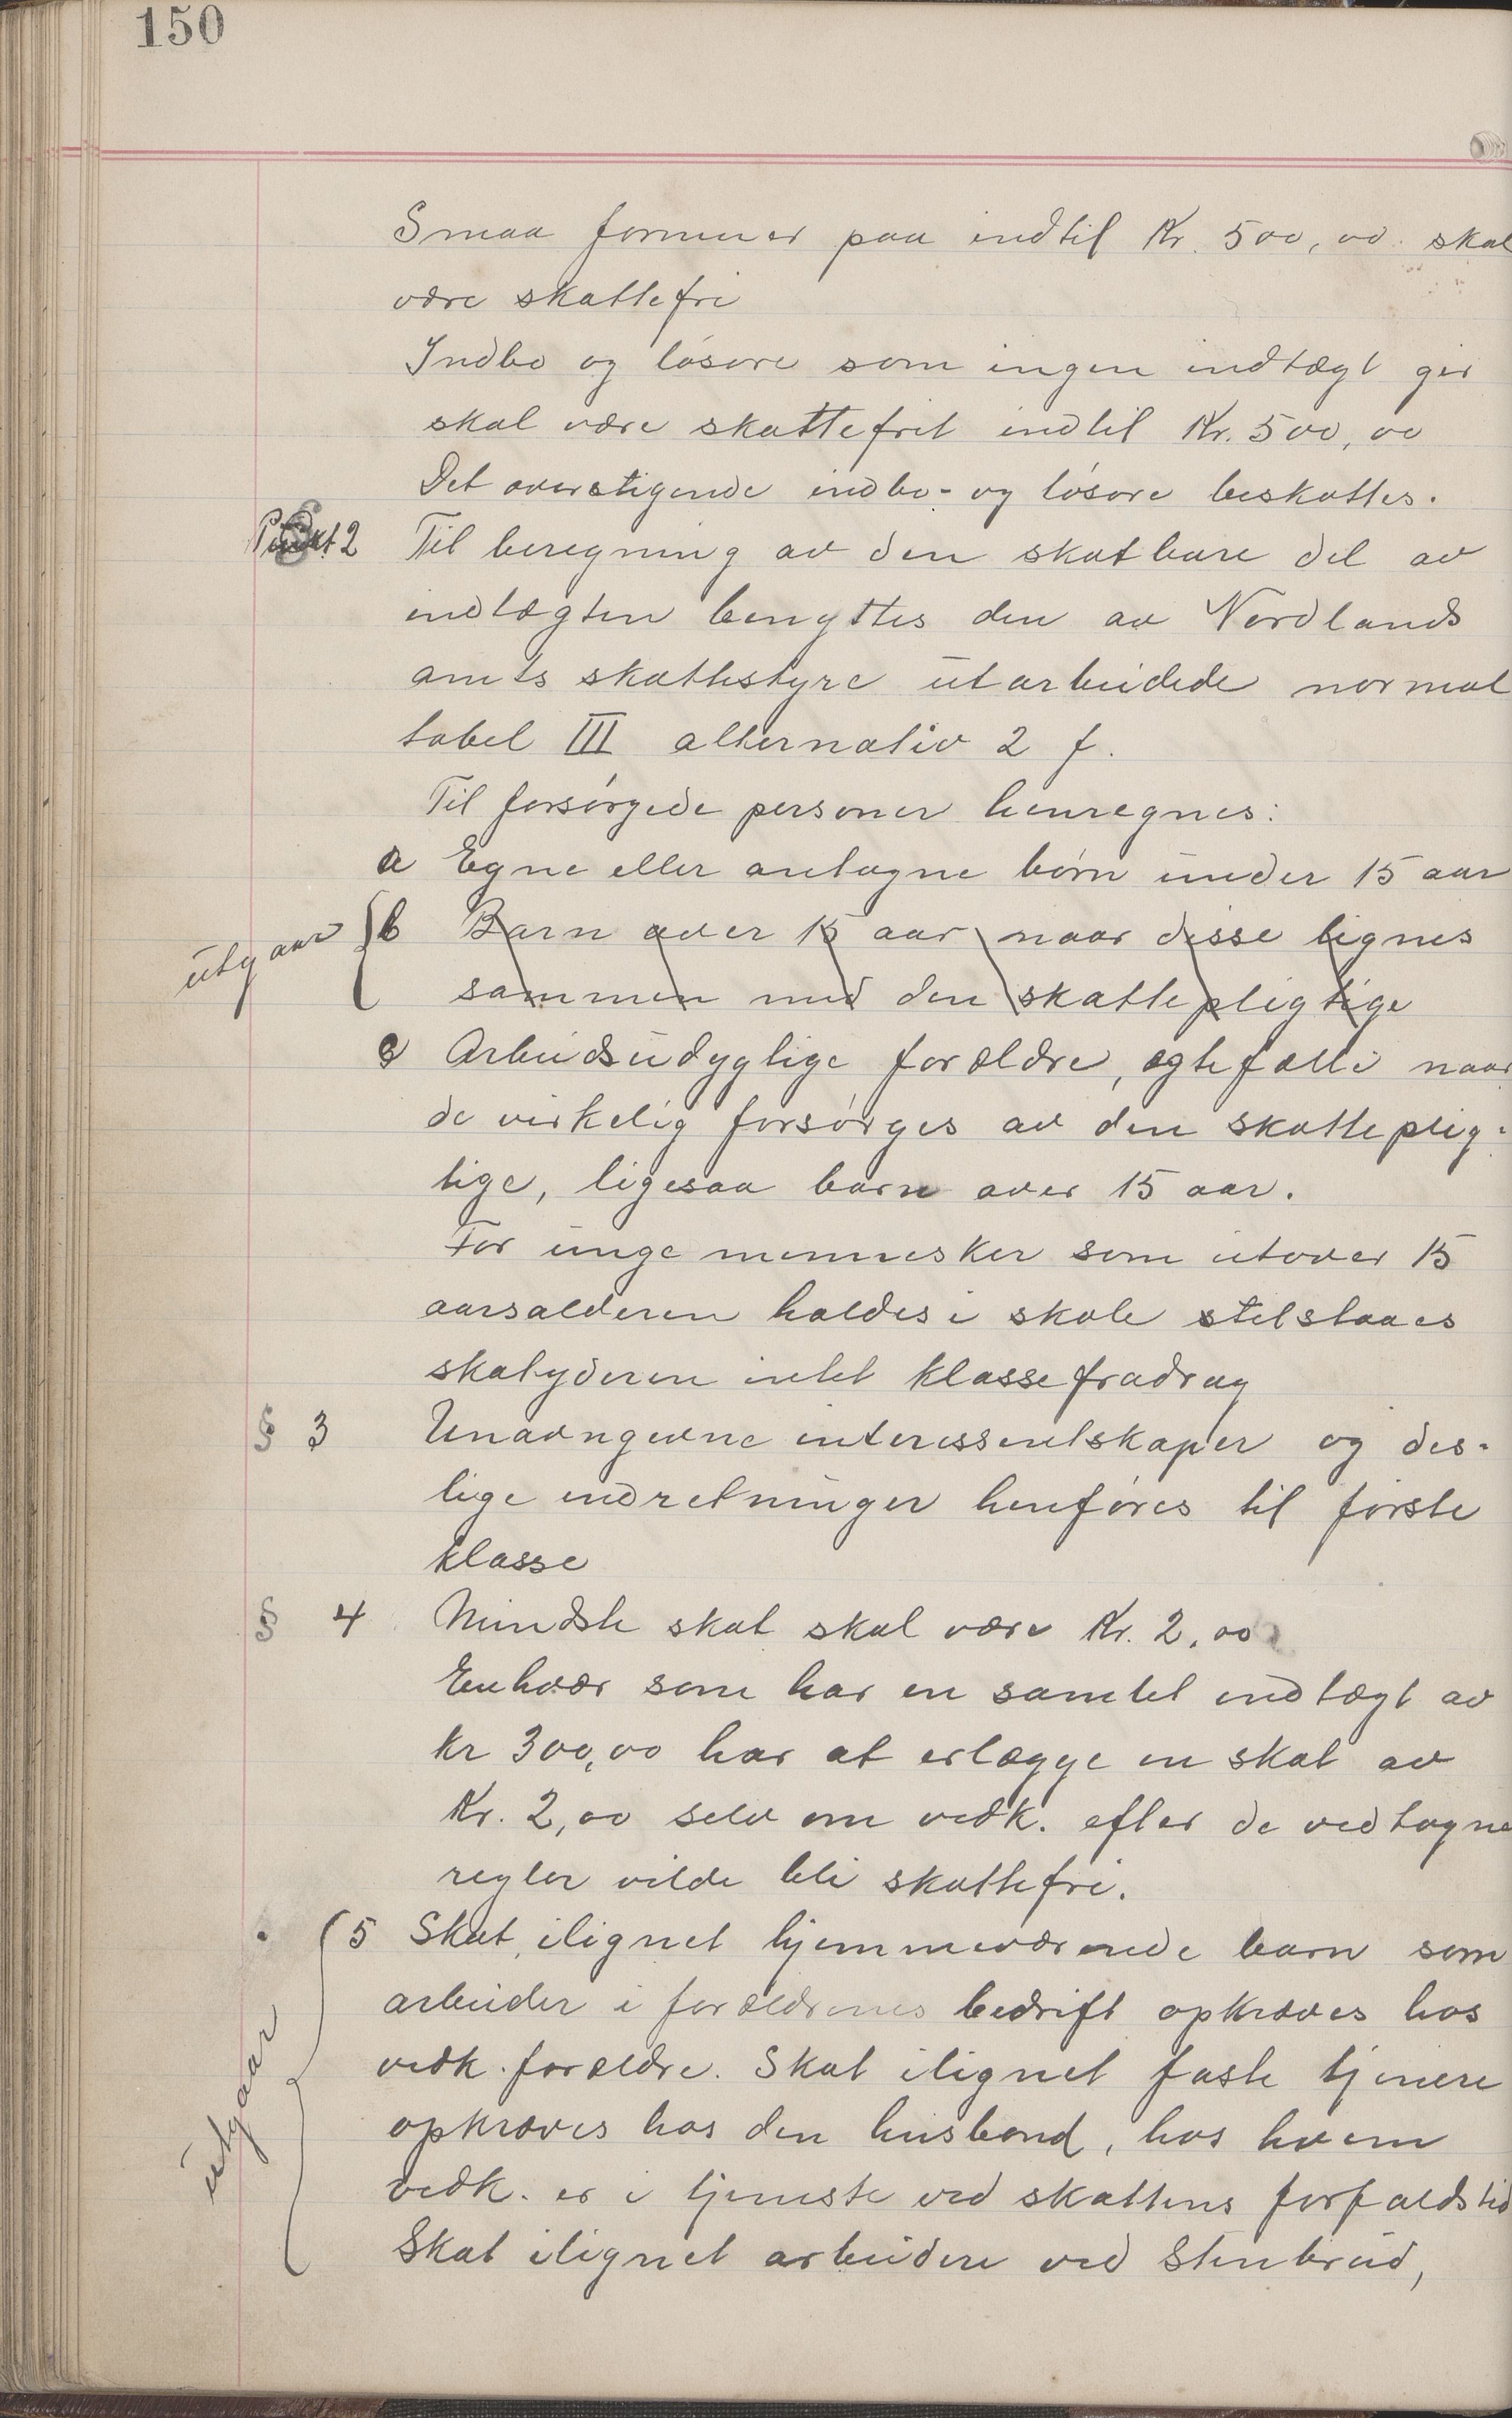 150
Smaa formuer paa indtil Kr. 500,00. skal
være skattefri
Indbo og løsøre som ingen indtægt gir
skal være skattefrit indtil Kr. 500,00
Det overstigende indbo- og løsøre beskattes.
Punkt 2 Til beregning av den skatbare del av
indtægten benyttes den av Nordlands
amts skattestyre utarbeidede normal
tabel III alternativ 2 f.
Til forsørgede personer henregnes:
a Egne eller antagne børn under 15 aar
utgaar { b Barn over 15 aar naar disse lignes
sammen med den skattepligtige
c Arbeidsudyglige forældre, ægtefælle naar
de virkelig forsørges av den skatteplig-
tige, ligesaa barn over 15 aar.
For unge mennesker som utover 15
aarsalderen holdes i skole tilstaaes
skatyderen intet klassefradrag
§ 3 Unavngivne interessentskaper og des-
lige indretninger henføres til første
klasse
§ 4 Mindste skat skal være Kr. 2,00
Enhvær som har en samlet indtægt av
kr 300,00 har at erlægge en skat av
Kr. 2,00 selv om vedk. efter de vedtagne
regler vilde bli skattefri.
utgaar { 5 Skat, ilignet hjemmeværende barn som
arbeider i forældrenes bedrift opkræves hos
vedk. forældre. Skat ilignet faste tjenere
opkræves hos den husbond, hos hvem
vedk. er i tjeneste ved skattens forfaldstid
Skat ilignet arbeidere ved Stenbrud,